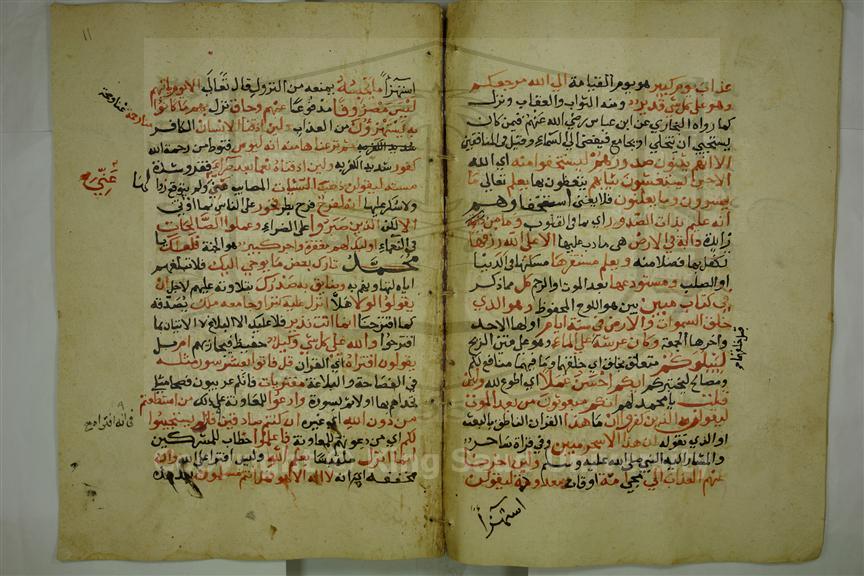 عذاب يوم كبير هو يوم القيامة الي الله مرجعكم
وهو علي كل شي قدير ومنه الثواب والعقاب ونزل
كما رواه البخاري عن ابن عباس رضي الله عنهم فيمن كان
يستحيي ان يتخلي او يجامع فيفضي الي السماء وقيل في المنافقين
الا انهم يثنون صدورهم ليستخفوا منه اي الله
الا حين يستغشون ثيابهم يتغطون بها يعلم تعالي ما
يسرون وما يعلنون فلا يغني استخفاوهم
انه عليم بذات الصدور اي بما في القلوب وما من
زايدة دابة في الارض هي ما دب عليها الا علي الله رزقها
تكفل به فضلا منه ويعلم مستقرها مسكنها في الدنيا
او الصلب ومستودعها بعد الموت او الرحم كل مما ذكر
في كتاب مبين بين هو اللوح المحفوظ وهو الذي
خلق السموات والارض في ستة ايام اولها الاحد
واخرها الجمعة وكان عرشه علي الماء وهو علي متن الريح
ليبلوكم متعلق بخلق اي خلقها وما فيهما منافع لكم
ومصالح ليختبركم ايكم احسن عملا اي اطوع لله ولئن
قلت يا محمد لهم انكم مبعوثون من بعد الموت
ليقولن الذين كفروا ان ما هذا القران الناطق بالبعث
او الذي تقوله الا سحر مبين وفي قراة ساحر
والمشار اليه النبي صلي الله عليه وسلم ولئن اخرنا
عنهم العذاب الي مجي امة اوقات معدودة ليقولن
استهزآ
قبل خلقهما
١١
استهزآ ما يحبسه يمنعه من النزول قال تعالي الا يوم ياتيهم
ليس مصروفا مدفوعا عنهم وحاق نزل بهم ما كانوا
به يستهزؤن من العذاب ولئن اذقنا الانسان الكافر
ثم نزعناها منه انه ليوس قنوط من رحمة الله
كفور شديد الكفر به ولئن اذقناه نعما بعد ضراء فقر وشدة
مسته ليقولن ذهب السيئات المصايب عني ولم يتوقع زوالها
ولا شكر عليها انه لفرح فرح بطر فخور علي الناس بما اوتي
الا لكن الذين صبروا علي الضراء وعملوا الصالحات
في النعماء اوليك لهم مغفرة واجر كبير هو الجنة فلعلك يا
محمد تارك بعض ما يوحي اليك فلا تبلغهم
اياه لتهاونهم به وضايق به صدرك بتلاوته عليهم لاجل ان
يقولوا لولا هلا انزل عليه كنز او جاء معه ملك يصدقه
كما اقترحنا انما انت نذير فلا عليك الا البلاغ لا الاتيان بما
اقترحوا والله علي كل شي وكيل حفيظ فيجازيهم ام بل
يقولون افتراه اي القران قل فاتوا بعشر سور مثله
في الفصاحة والبلاغة مفتريات فانكم عربيون فصحا مثلي
تحداهم بها اولا ثم بسورة وادعوا للمعاونة علي ذلك من استطعتم
من دون الله اي غيره ان كنتم صادقين فان لم يستجيبوا
لكم اي من دعوتموهم للمعاونة فاعلموا خطاب للمشركين
انما انزل ملتبسا بعلم الله وليس افتراء علي الله وان
مخففة اي انه لا اله الا هو فهل انتم مسلمون بعد هذه
عني
لها
في انه افتراه